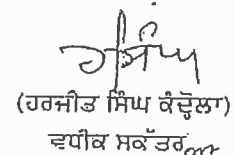 (ਹਰਜੀਤ ਸਿੰਘ ਕੰਦ੍ਹੋਲਾ)
ਵਧੀਕ ਸਕੱਤਰ